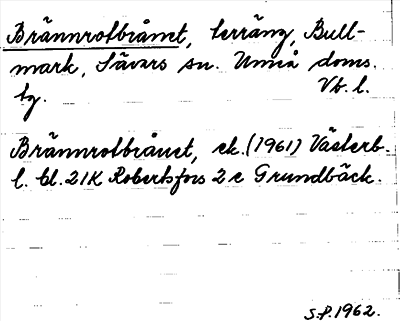 Brännrotbrånet, terräng, Bull-
mark, Sävars sn. Umeå doms.
tg. Vb. l.
Brännrotbrånet, ek. (1961) Västerb.
l. bl. 21K Robertsfors 2 c Grundbäck.
S.P. 1962.